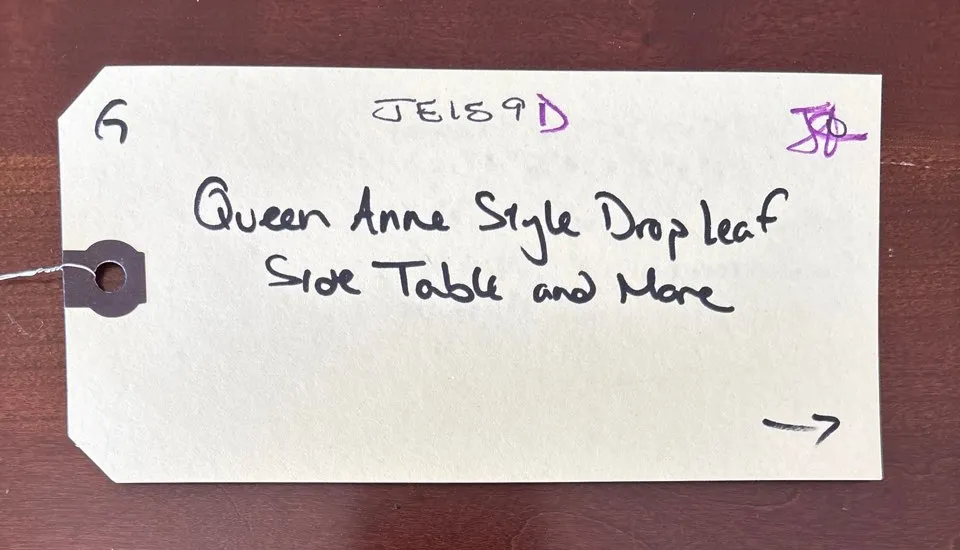 G
JE159D
Queen Anne Style Drop Leaf
Side Table and More
→